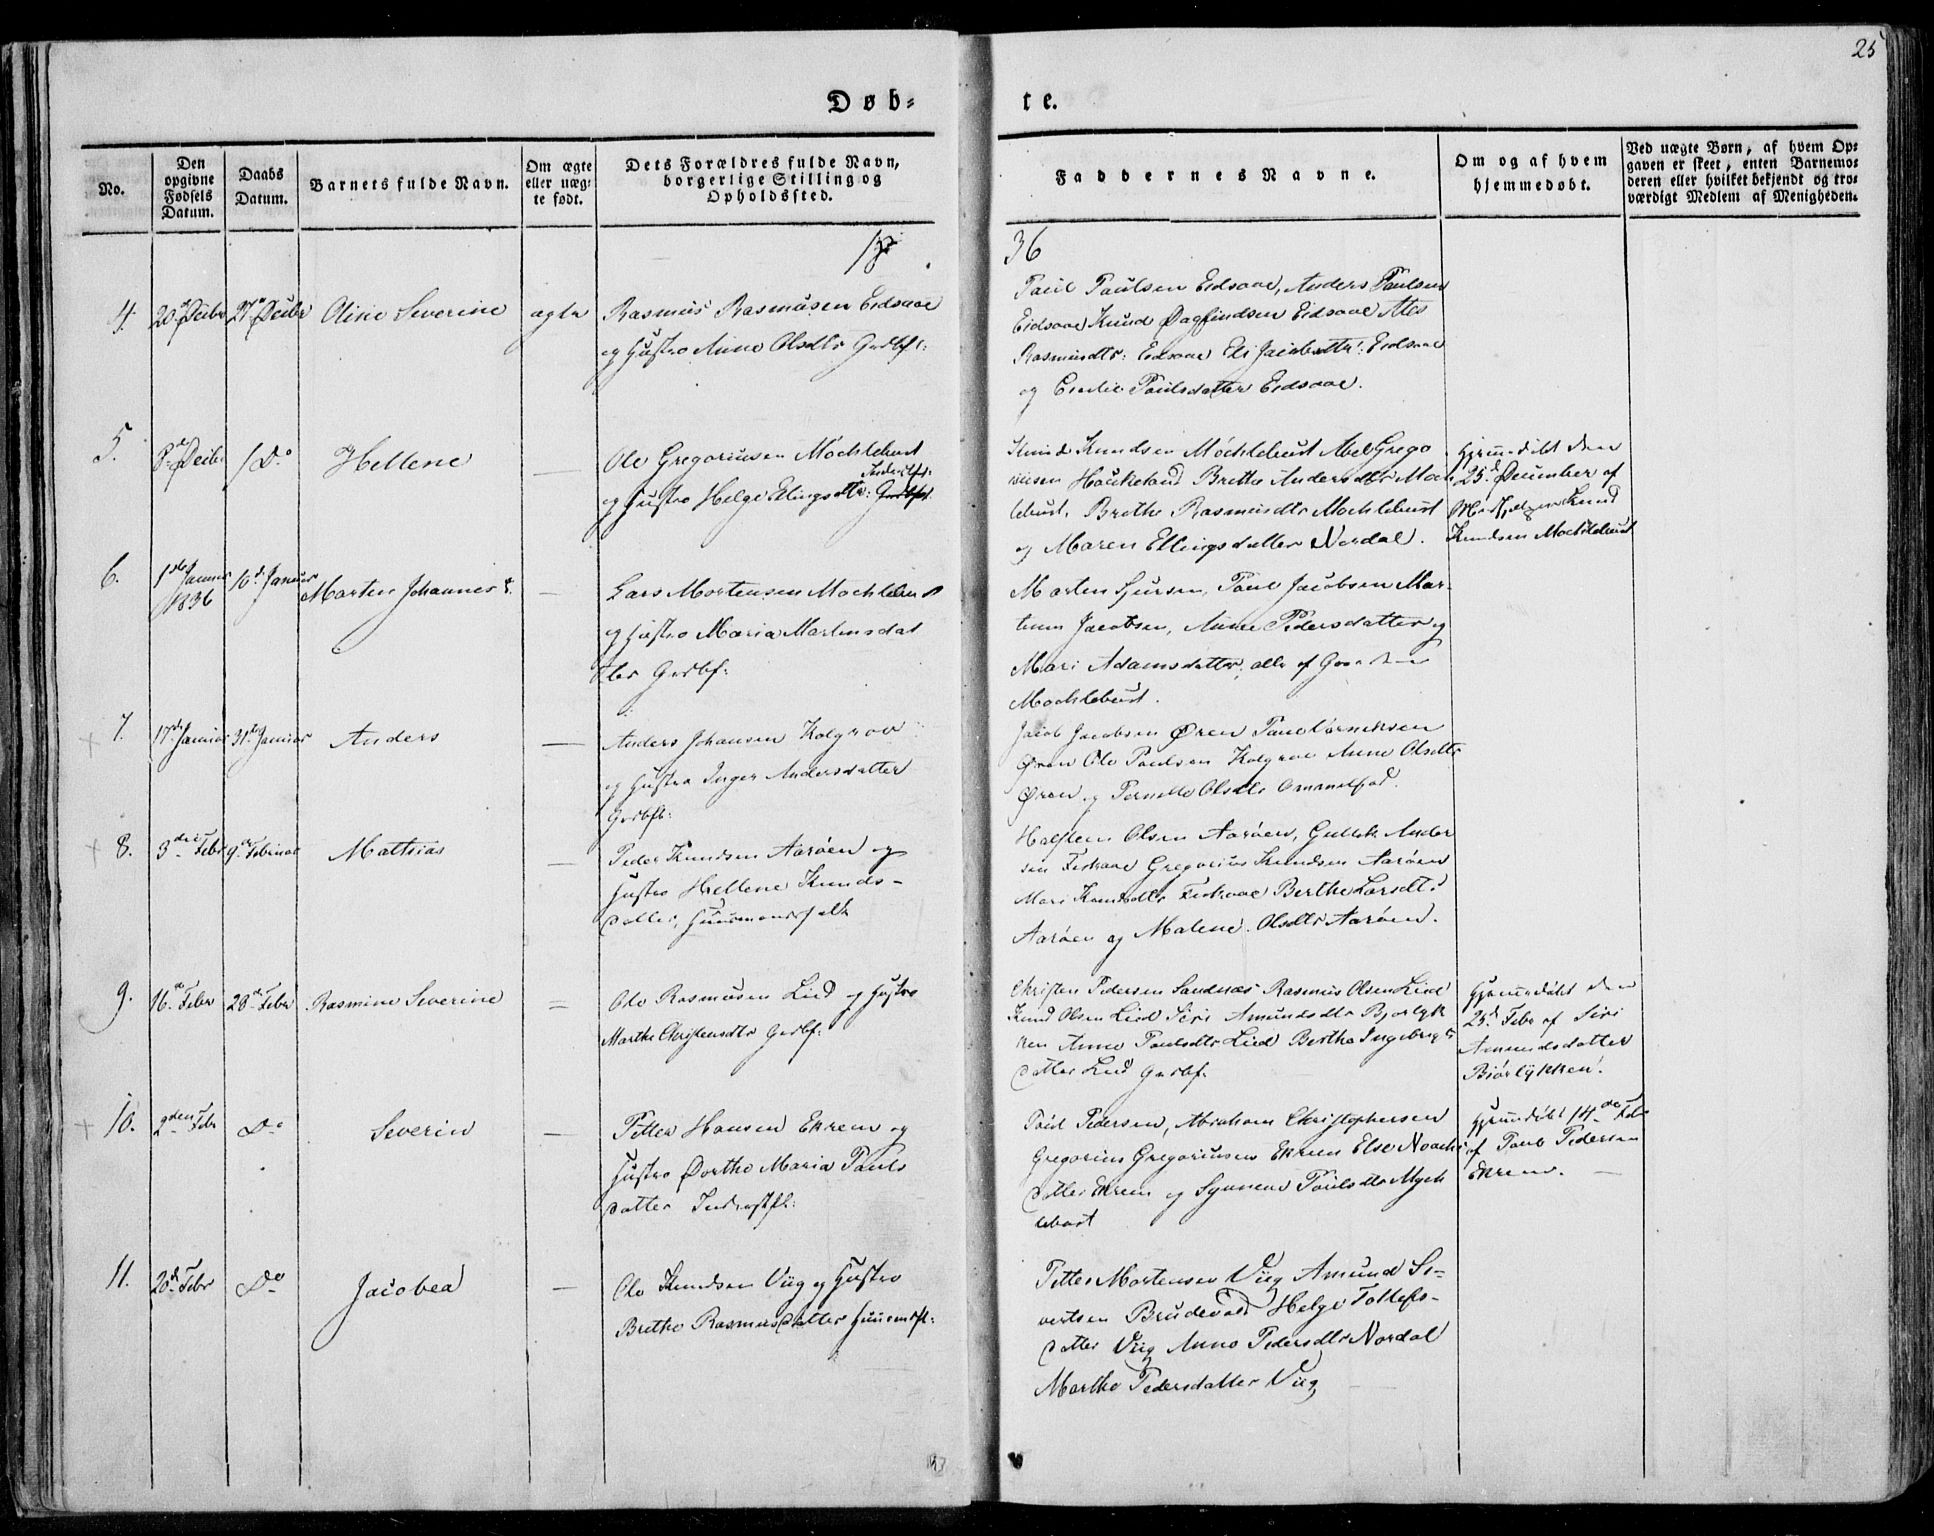 25
Døb-
te.
No.
Den opgivne Fødsels Datum.
Daabs Datum.
Barnets fulde Navn.
Om ægte eller uæg- te født.
Dets Forældres fulde Navn, borgerlige Stilling og Opholdssted.
Faddernes Navne.
Om og af hvem hjemmedøbt.
Ved uægte Børn, af hvem Op- gaven er skeet, enten Barnemo- deren eller hvilket bekjendt og tro- værdigt Medlem af Menigheden.
18
36
4. 20de Decbr 27de Decbr Oline Severine ægte
Rasmus Rasmusen Eidsaae
og Hustro Anne Olsdtr Grdbf:
Paul Paulsen Eidsaae, Anders Paulsen
Eidsaae Knud Dagfindsen Eidsaae
Rasmusdtr: Eidsaae Eli Jacobsdtr: Eidsaae
og Paulsdatter Eidsaae.
5. 8de Decbr Do Hellene —
Ole Gregoriusen Mochlebust
og Hustro Helge Elingsdtr: Inderstfl:
Knud Knudsen Mochlebust Abel Grego
riusen Houkeland Brethe Andersdtr Moch
lebust. Brethe Rasmusdtr Mochlebust
og Maren Ellingsdatter Nordal.
Hjemmedøbt den
25de December af
Knud
Knudsen Mochlebust
6. 1de Januar 1836 10de Januar Morten Johannes —
Lars Mortensen Mochlebust
og Hustro Maria Martinsdat
ter Grdbf:
Morten Sjursen, Paul Jacobsen Mar-
tinus Jacobsen, Anne Pedersdatter og
Mari Adamsdatter, alle af Gaarden
Mochlebust.
7. 17de Januar 31te Januar Anders —
Anders Johansen Kolgrov
og Hustro Inger Andersdatter
Grdbfl:
Jacob Jacobsen Øren Paul
Øren Ole Paulsen Kolgrov Anne Olsdtr
Øren og Pernelle Olsdtr Ommelfod.
8. 3die Febr 9de Februar Mathias —
Peder Knudsen Aarøen og
Hustro Hellene Knuds-
datter, Huusmandsfolk
Halsten Olsen Aarøen, Gullik Ander
sen Fiskaae Gregorius Knudsen Aarøen
Mari Knudsdtr Fiskaae Berthe Larsdtr
Aarøen og Malene Olsdtr Aarøen.
9. 16de Febr 28de Febr Rasmine Severine =
Ole Rasmusen Lied og Hustro
Marthe Christensdtr Grdbf:
Christen Pedersen Sandnæs Rasmus Olsen Lied
Knud Olsen Lied Siri Amundsdtr Bjørlyk
ken Anne Paulsdtr Lied Berthe Ingebrigts
datter Lied Grdbf.
Hjemmedøbt den
25de Febr af Siri
Amundsdatter
Biørlykken.
10. 2den Febr Do Severin —
Petter Hansen Ekrem og
Hustro Dorthe Maria Pauls
datter Inderstfl:
Poul Pedersen, Abraham Christophersen
Gregorius Gregoriusen Ekrem Else Noachs
datter Ekrem og Synneve Paulsdtr Myck
lebost
Hjemmedøbt 14de Feb.
af Paul Pedersen
Ekrem. —
11. 20de Febr Do Jacobea —
Ole Knudsen Viig og Hustro
Brethe Rasmusdatter Huusmdfl:
Petter Mortensen Viig Amund Si-
vertsen Brudevold Helge Tollefs-
datter Viig Anne Pedersdtr Nordal
Marthe Pedersdatter Viig